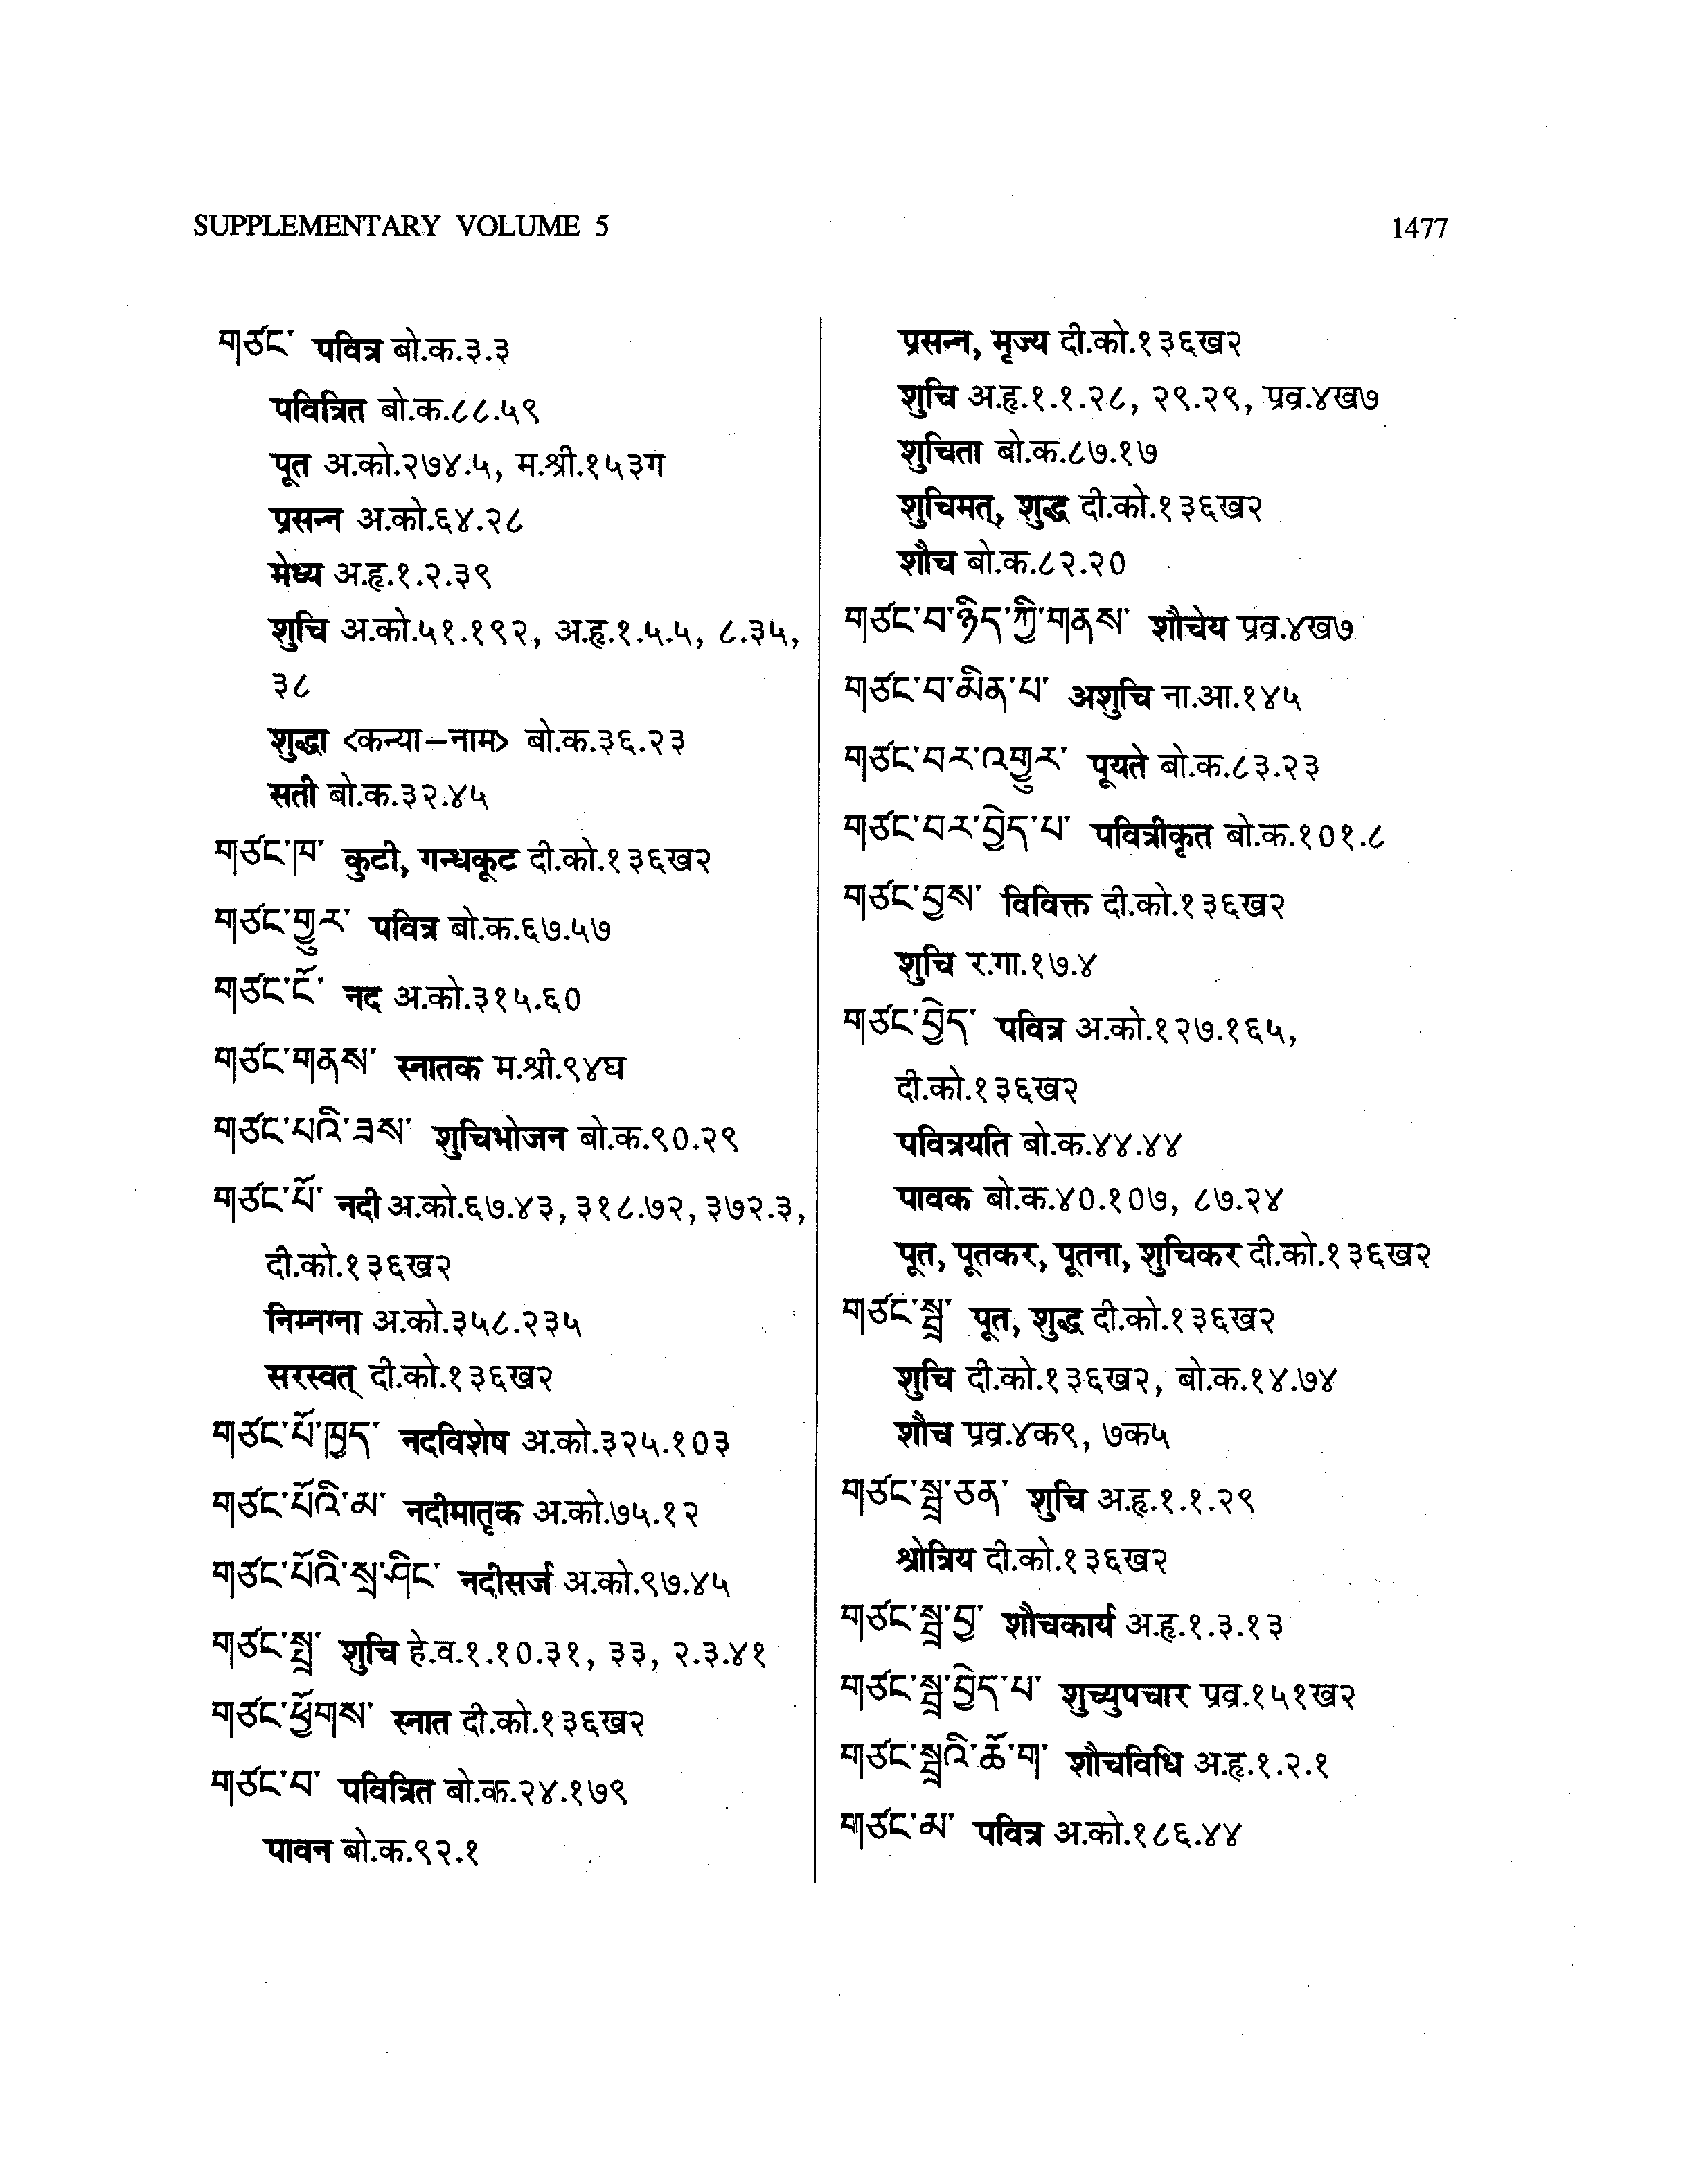 SUPPLEMENTARY VOLUME 5
1477
གཙང་ पवित्र बो.क.३.३
पवित्रित बो.क.८८.५९
पूत अ.को.२७४.५, म.श्री.१५३ग
प्रसन्न अ.को.६४.२८
मेध्य अ.हृ.१.२.३९
शुचि अ.को.५१.१९२, अ.हृ.१.५.५, ८.३५,
३८
शुद्धा <कन्या–नाम> बो.क.३६.२३
सती बो.क.३२.४५
གཙང་ཁ་ कुटी, गन्धकूट दी.को.१३६ख२
གཙང་གྱུར་ पवित्र बो.क.६७.५७
གཙང་ངོ་ नद अ.को.३१५.६०
གཙང་གནས་ स्नातक म.श्री.९४घ
གཙང་པའི་ཟས་ शुचिभोजन बो.क.९०.२९
གཙང་པོ་ नदी अ.को.६७.४३, ३१८.७२, ३७२.३,
दी.को.१३६ख२
निम्नग्ना अ.को.३५८.२३५
सरस्वत् दी.को.१३६ख२
གཙང་པོ་ཁྱད་ नदविशेष अ.को.३२५.१०३
གཙང་པོའི་མ་ नदीमातृक अ.को.७५.१२
གཙང་པོའི་སྲ་ཤིང་ नदीसर्ज अ.को.९७.४५
གཙང་སྤྲ་ शुचि हे.व.१.१०.३१, ३३, २.३.४१
གཙང་ཕྱོགས་ स्नात दी.को.१३६ख२
གཙང་བ་ पवित्रित बो.क.२४.१७९
पावन बो.क.९२.१
प्रसन्न, मृज्य दी.को.१३६ख२
शुचि अ.हृ.१.१.२८, २९.२९, प्रव्र.४ख७
शुचिता बो.क.८७.१७
शुचिमत्, शुद्ध दी.को.१३६ख२
शौच बो.क.८२.२०
གཙང་བ་ཉིད་ཀྱི་གནས་ शौचेय प्रव्र.४ख७
གཙང་བ་མིན་པ་ अशुचि ना.आ.१४५
གཙང་བར་འགྱུར་ पूयते बो.क.८३.२३
གཙང་བར་བྱེད་པ་ पवित्रीकृत बो.क.१०१.८
གཙང་བྱས་ विविक्त दी.को.१३६ख२
शुचि र.गा.१७.४
གཙང་བྱེད་ पवित्र अ.को.१२७.१६५,
दी.को.१३६ख२
पवित्रयति बो.क.४४.४४
पावक बो.क.४०.१०७, ८७.२४
पूत, पूतकर, पूतना, शुचिकर दी.को.१३६ख२
གཙང་སྦྲ་ पूत, शुद्ध दी.को.१३६ख२
शुचि दी.को.१३६ख२, बो.क.१४.७४
शौच प्रव्र.४क९, ७क५
གཙང་སྦྲ་ཅན་ शुचि अ.हृ.१.१.२९
श्रोत्रिय दी.को.१३६ख२
གཙང་སྦྲ་བྱ་ शौचकार्य अ.हृ.१.३.१३
གཙང་སྦྲ་བྱེད་པ་ शुच्युपचार प्रव्र.१५१ख२
གཙང་སྦྲའི་ཆོ་ག་ शौचविधि अ.हृ.१.२.१
གཙང་མ་ पवित्र अ.को.१८६.४४